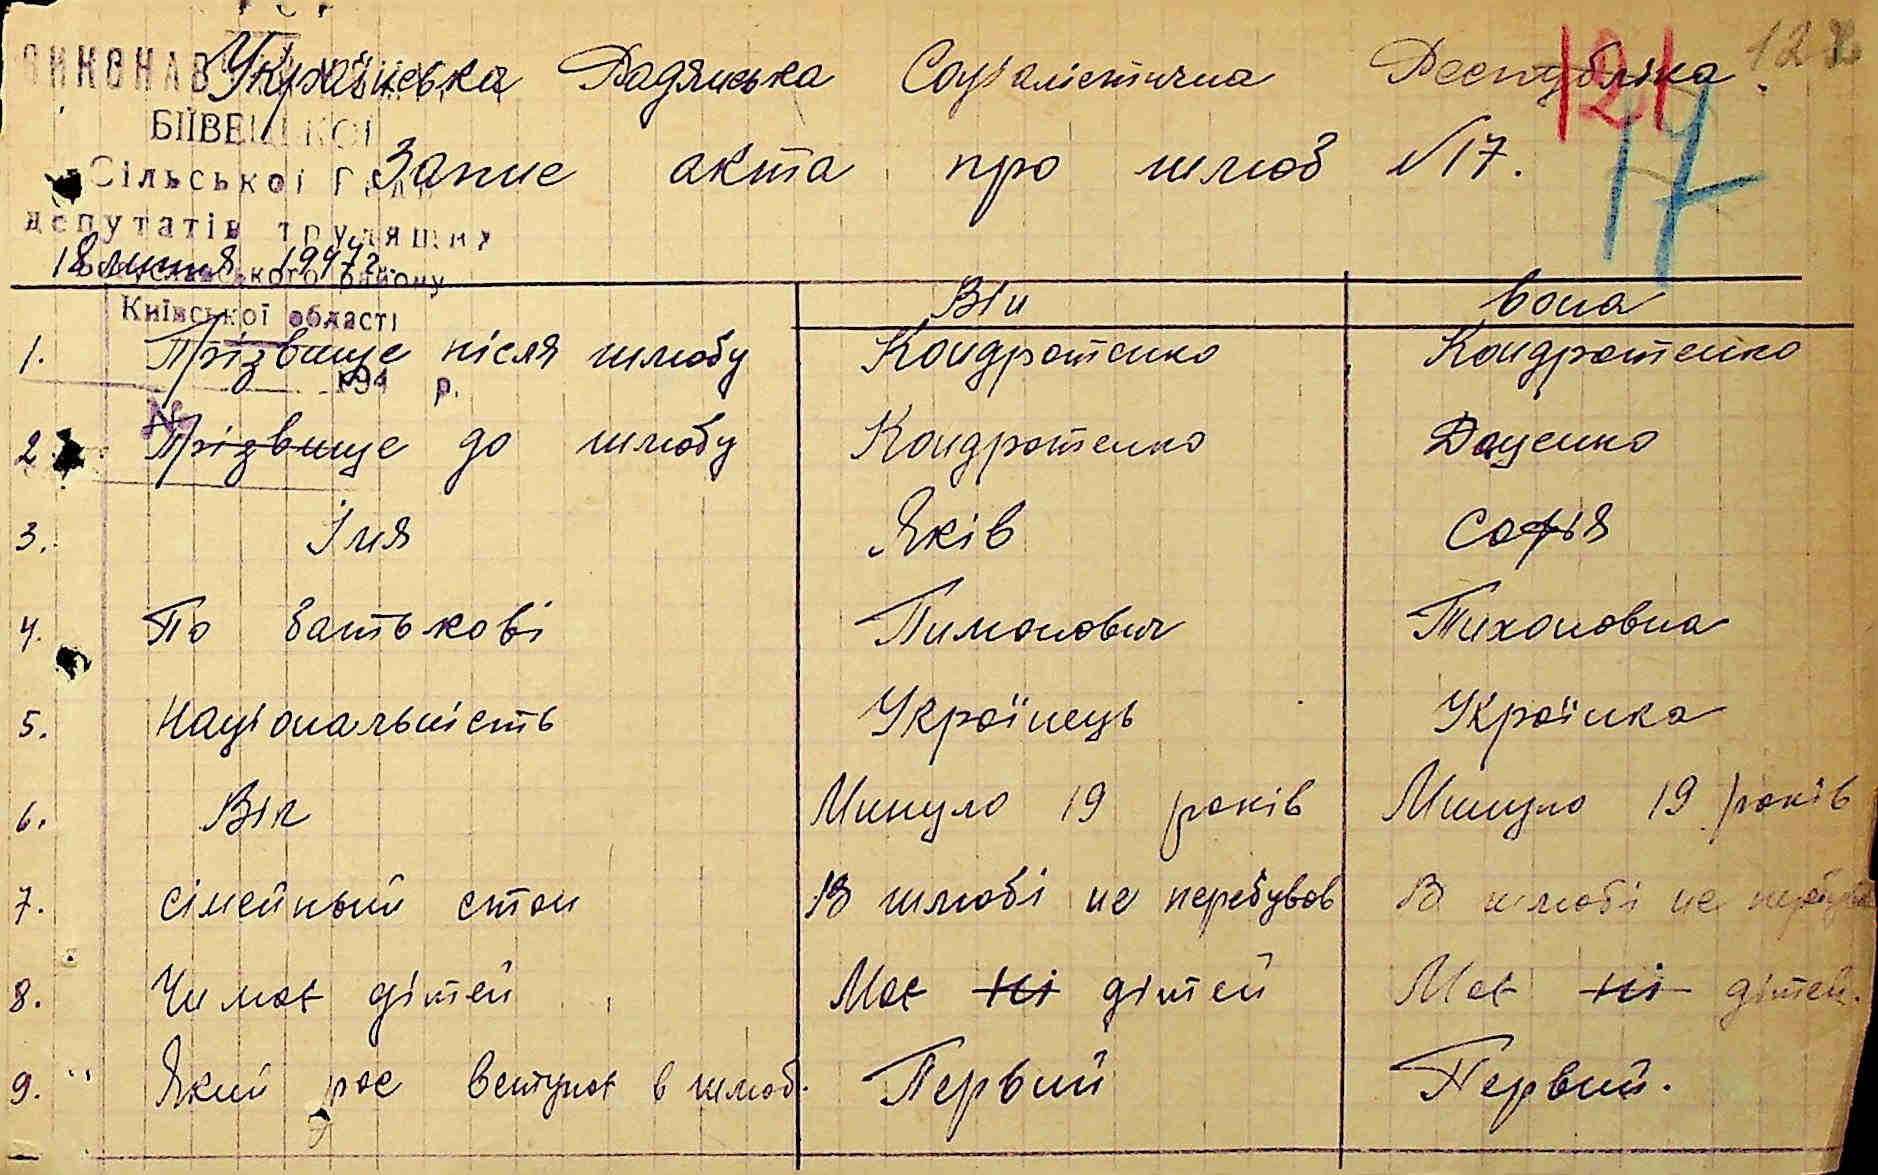 Українська Радянська Соціалістична Республіка
121 122
ВИКОНАВ
БІЇВЕЦЬКОЇ
Запис акта про шлюб №17. 17
Сільської Ради
депутатів трудящих
18 липня 1947 р.
ського району
Київської області
Він Вона
1. Прізвище після шлюбу Кондратенко Кондратенко
194 р.
№
2 Прізвище до шлюбу Кондратенко Даценко
3. Імя Яків Софія
4. По батькові Пимонович Тихоновна
5. Національність Українець Українка
6. Вік Минуло 19 років Минуло 19 років
7. Сімейный стан В шлюбі не перебував В шлюбі не
8. Чи має дітей Має ні дітей Має ні дітей.
9. Який рас вступає в шлюб. Первий Первий.